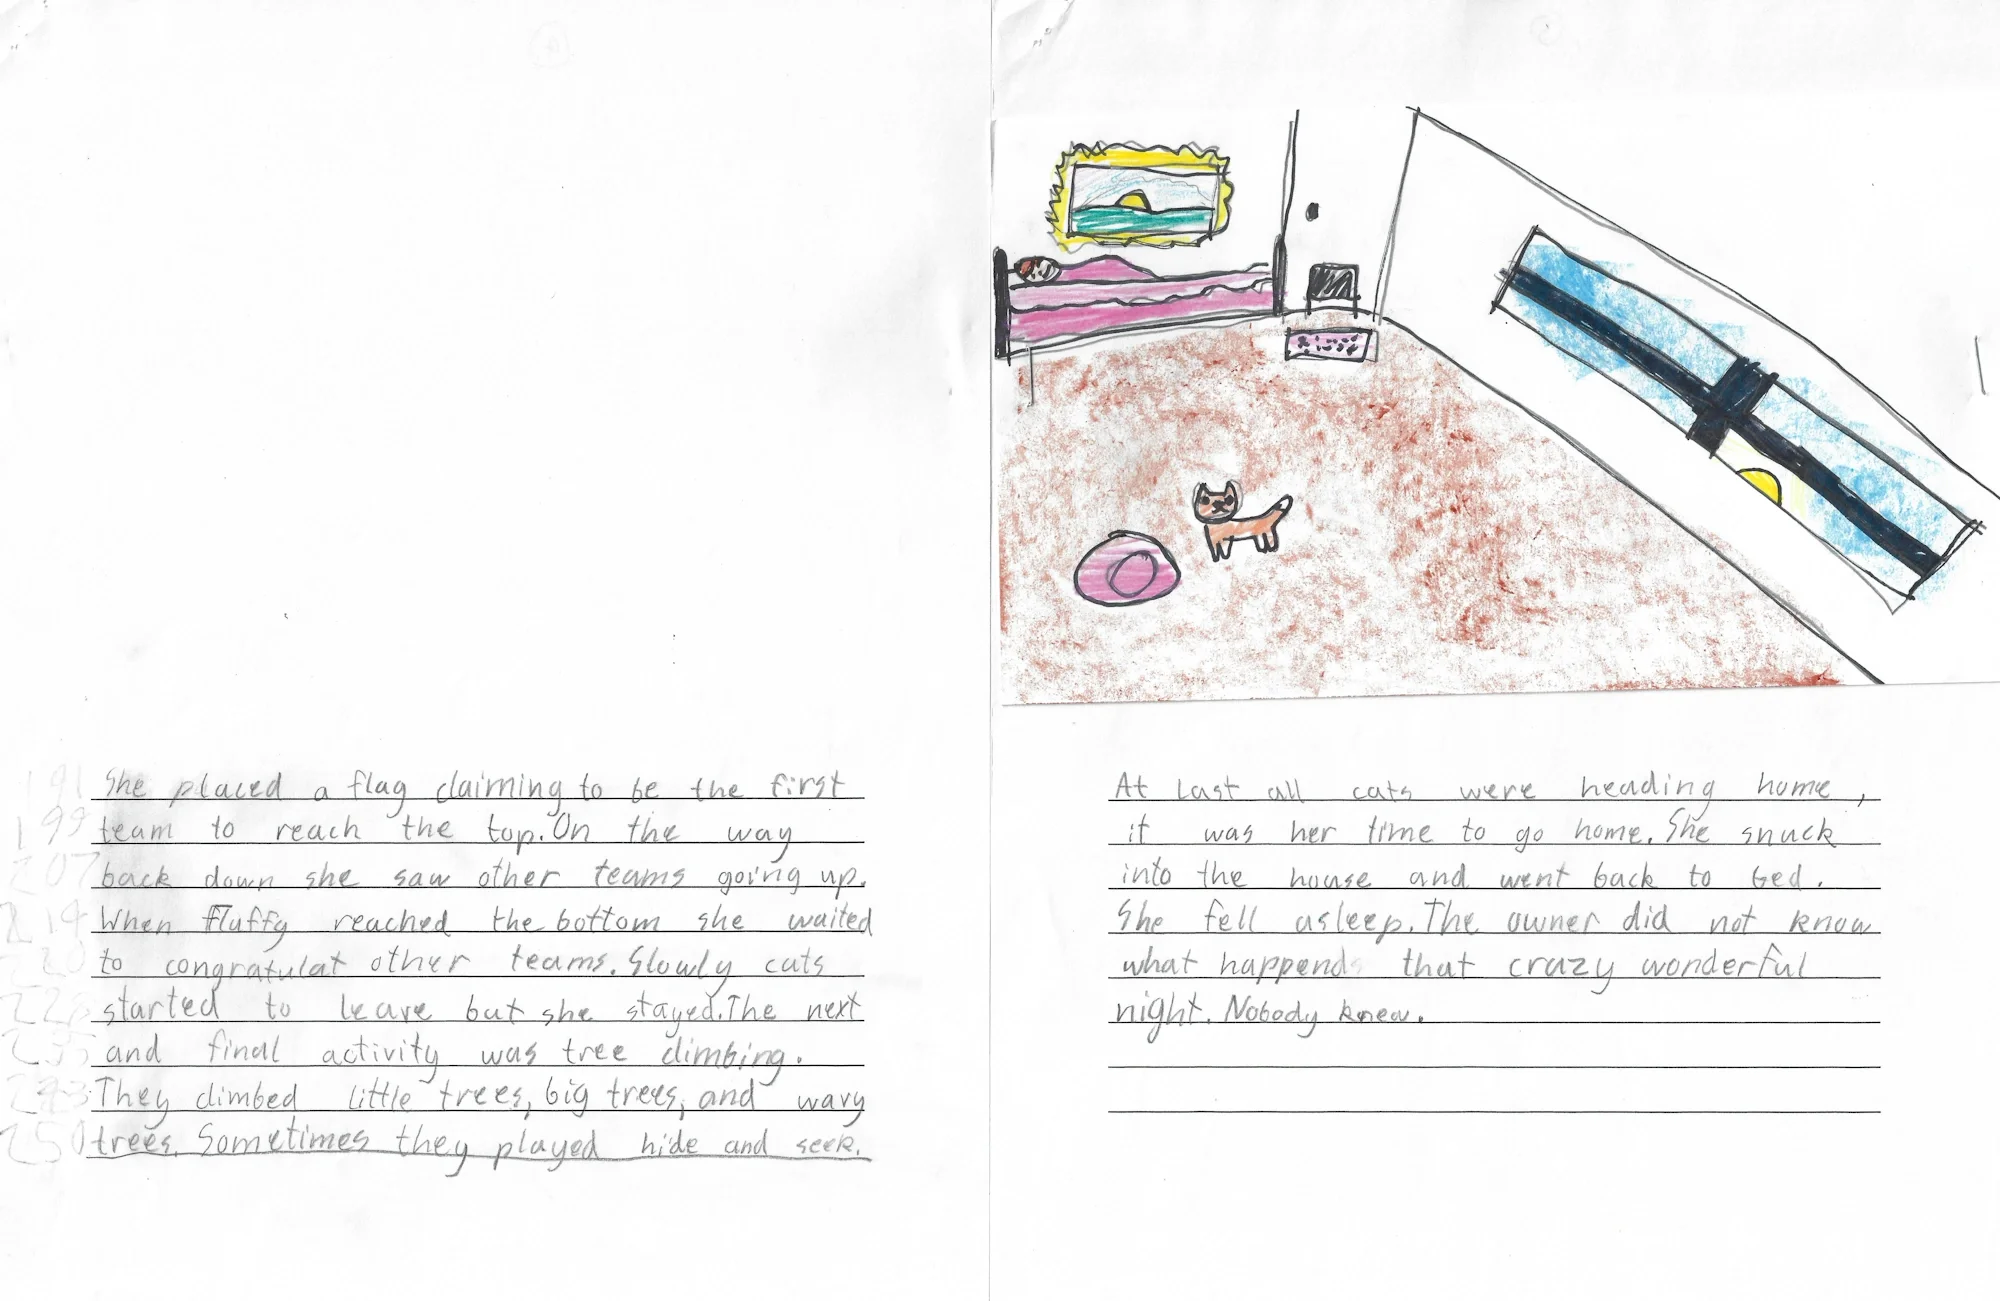 191 She placed a flag claiming to be the first
199 team to reach the top. On the way
207 back down she saw other teams going up.
214 When fluffy reached the bottom she waited
220 to congratulat other teams. Slowly cats
228 started to leave but she stayed. The next
235 and final activity was tree climbing.
243 They climbed little trees, big trees, and wavy
250 trees. Sometimes they played hide and seek.
At last all cats were heading home,
it was her time to go home. She snuck
into the house and went back to bed.
She fell asleep. The owner did not know
what happend that crazy wonderful
night. Nobody knew.